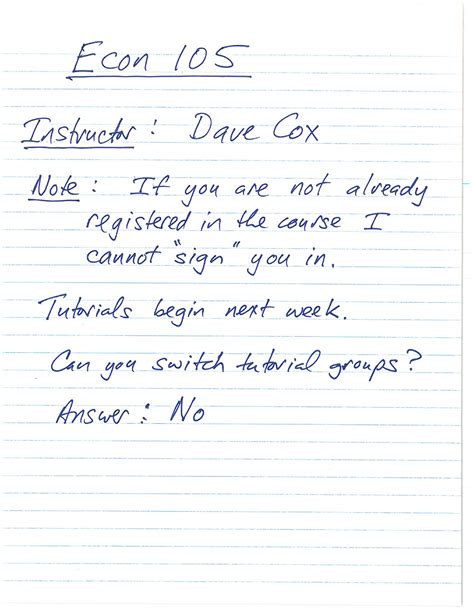 Econ 105
Instructor: Dave Cox
Note: If you are not already
registered in the course I
cannot "sign" you in.
Tutorials begin next week.
Can you switch tutorial groups?
Answer: No